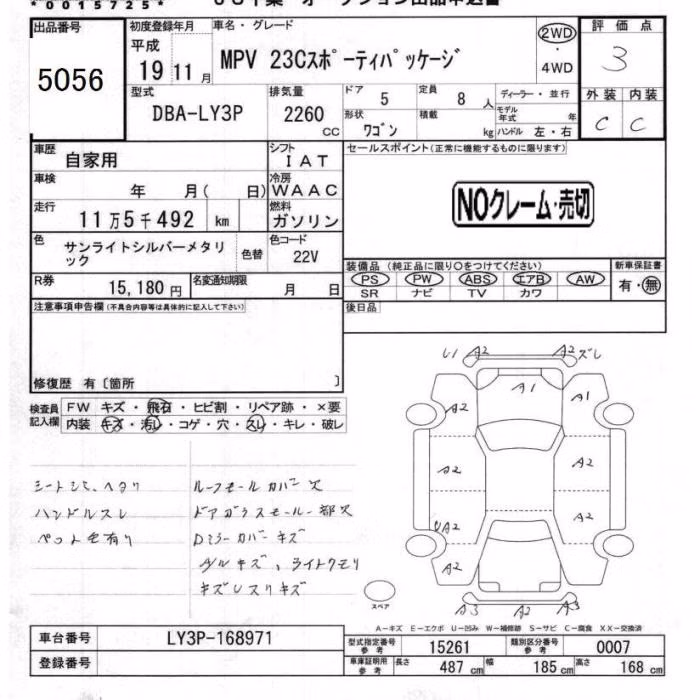 *0015725*
出品番号
5056
初度登録年月
平成
19 11 月
車名・グレード
MPV 23Cスポーティパッケージ
2WD
・
4WD
評価点
3
外装 内装
C C
型式
DBA-LY3P
排気量
2260
CC
ドア
5
定員
8 人
形状
ワゴン
積載
kg
ディーラー・並行
モデル
年式
年
ハンドル 左・右
車歴
自家用
シフト
IAT
車検
年 月( 日)
冷房
WAAC
走行
11万5千492 km
燃料
ガソリン
色
サンライトシルバーメタリ
ック
色替
色コード
22V
R券
15,180 円
名変通知期限
月 日
セールスポイント(正常に機能するものに限ります)
NOクレーム・売切
装備品 (純正品に限り○をつけてください)
PS PW ABS エアB AW
SR ナビ TV カワ
新車保証書
有・無
後日品
注意事項申告欄(不具合内容等は具体的に記入して下さい)
修復歴 有〔箇所 〕
検査員
記入欄
FW キズ・飛石・ヒビ割・リペア跡・×要
内装 キズ・汚レ・コゲ・穴・スレ・キレ・破レ
シートシミ、ヘタリ
ハンドルスレ
ペット毛有り
ルーフモールカバー欠
ドアガラスモール一部欠
Dミラーカバーキズ
A/Wキズ、ライトクモリ
キズレスリキズ
U1 A2
A2 ズレ
A1
A1
A2
A2
A2
A2
UA2
A2
A2
A3
A2
A3
スペア
A-キズ E-エクボ U-凹み W-補修跡 S-サビ C-腐食 XX-交換済
車台番号
LY3P-168971
登録番号
型式指定番号
参考
15261
類別区分番号
参考
0007
車庫証明用
参考
長さ
487 cm
幅
185 cm
高さ
168 cm